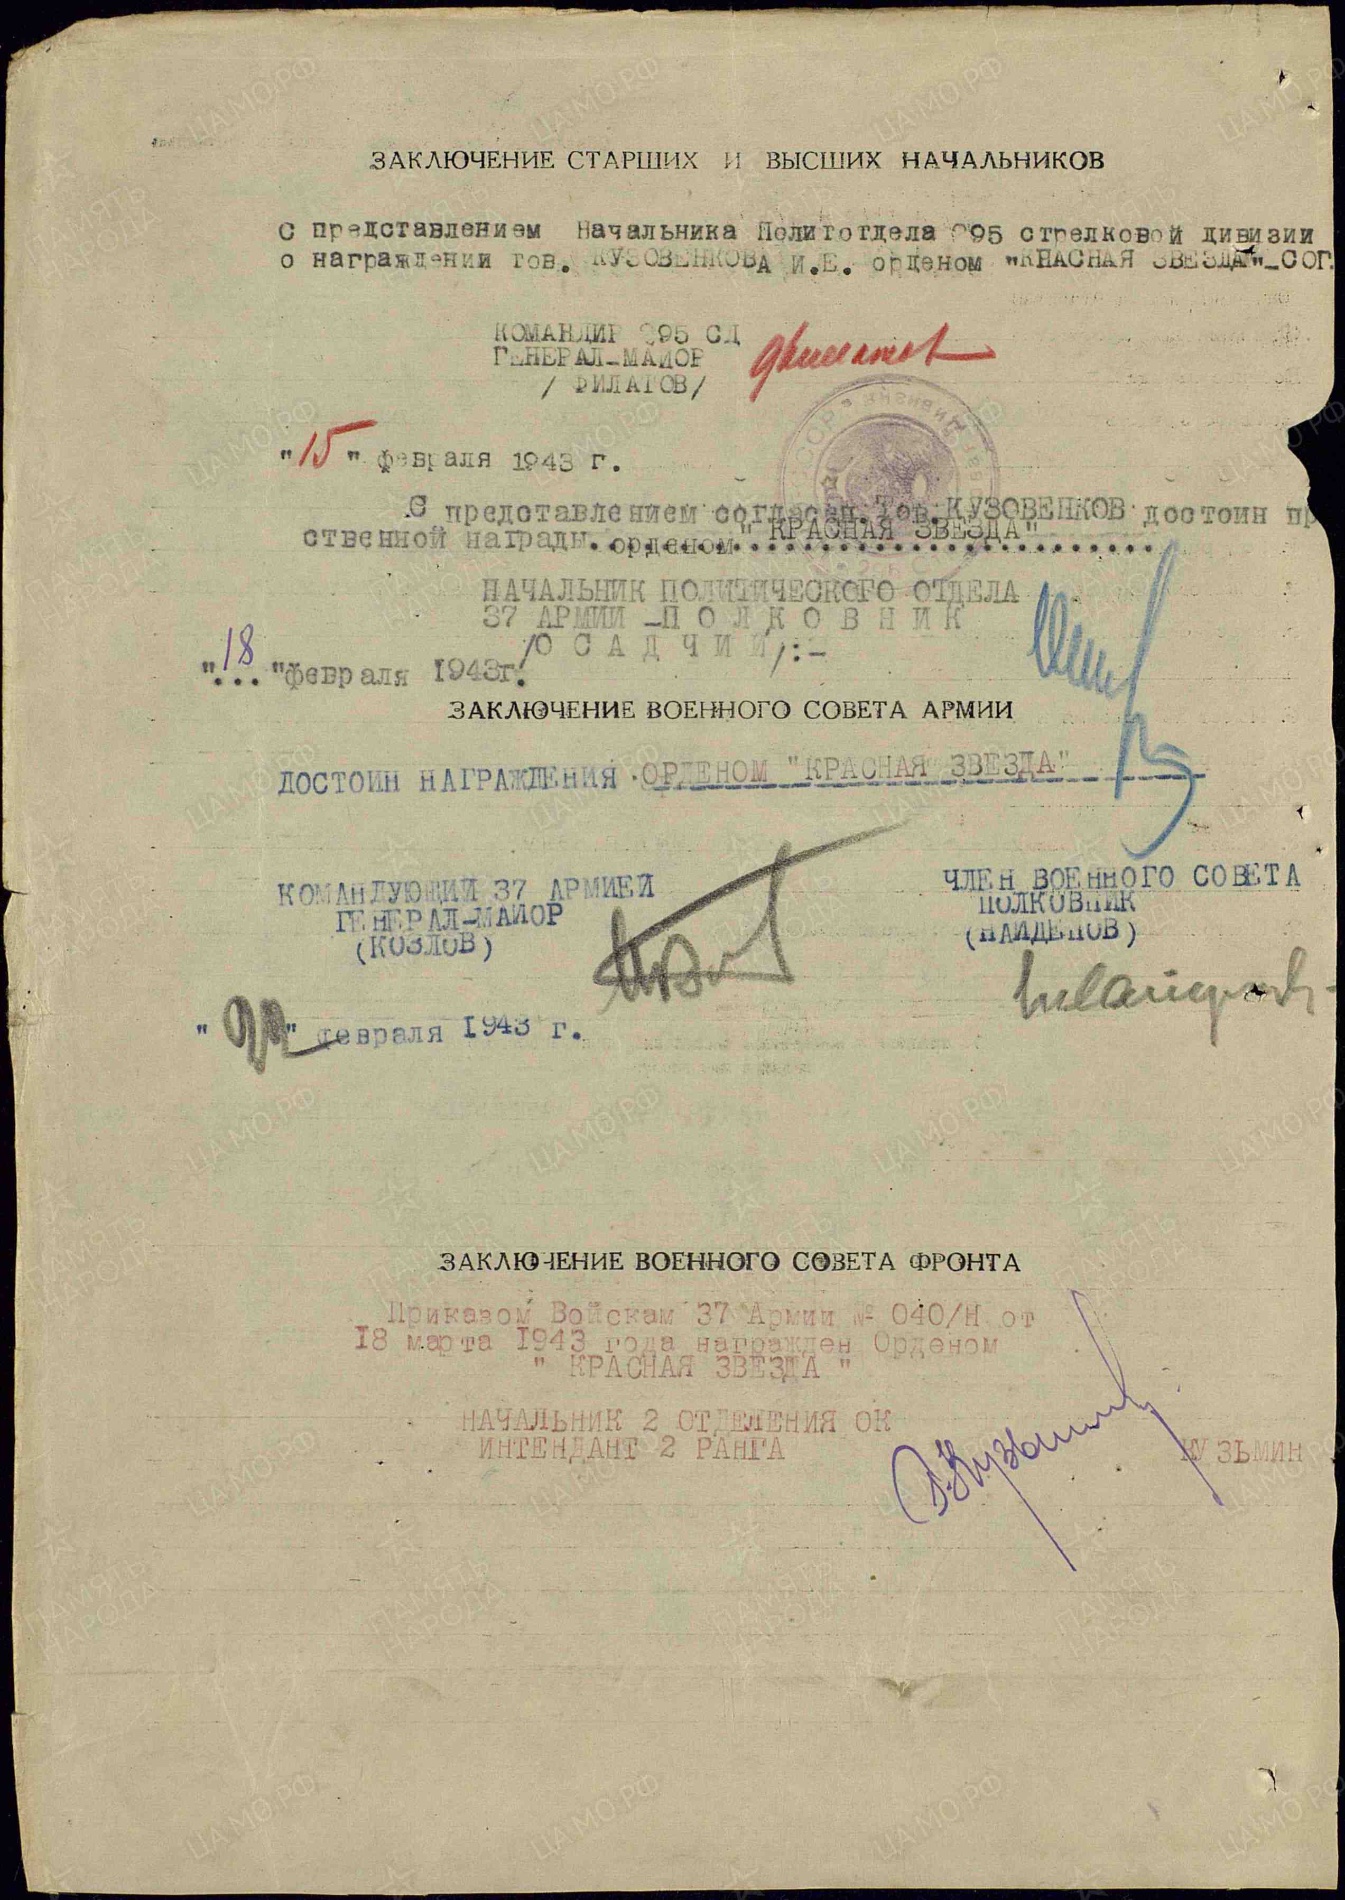 ЗАКЛЮЧЕНИЕ СТАРШИХ И ВЫСШИХ НАЧАЛЬНИКОВ
С представлением Начальника Политотдела 295 стрелковой дивизии
о награждении тов. КУЗОВЕНКОВА И.Е. орденом "КРАСНАЯ ЗВЕЗДА"-СОГ.
КОМАНДИР 295 СД
ГЕНЕРАЛ-МАЙОР
/ ФИЛАТОВ/
"15" февраля 1943 г.
С представлением согласен. Тов. КУЗОВЕНКОВ достоин пр
ственной награды..орденом" КРАСНАЯ ЗВЕЗДА"
НАЧАЛЬНИК ПОЛИТИЧЕСКОГО ОТДЕЛА
37 АРМИИ -П О Л К О В Н И К
/О С А Д Ч И Й/:-
"18"февраля 1943г.
ЗАКЛЮЧЕНИЕ ВОЕННОГО СОВЕТА АРМИИ
ДОСТОИН НАГРАЖДЕНИЯ ОРДЕНОМ "КРАСНАЯ ЗВЕЗДА"
КОМАНДУЮЩИЙ 37 АРМИЕЙ
ГЕНЕРАЛ-МАЙОР
(КОЗЛОВ)
ЧЛЕН ВОЕННОГО СОВЕТА
ПОЛКОВНИК
(НАЙДЕНОВ)
" " февраля 1943 г.
ЗАКЛЮЧЕНИЕ ВОЕННОГО СОВЕТА ФРОНТА
Приказом Войскам 37 Армии № 040/Н от
18 марта 1943 года награжден Орденом
" КРАСНАЯ ЗВЕЗДА "
НАЧАЛЬНИК 2 ОТДЕЛЕНИЯ ОК
ИНТЕНДАНТ 2 РАНГА
КУЗЬМИН
ЦАМО.РФ
ПАМЯТЬ НАРОДА